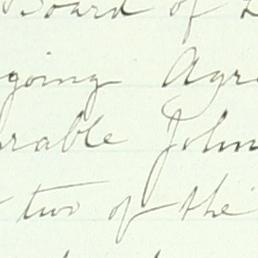 Board of
going Agre
rable John
two of the